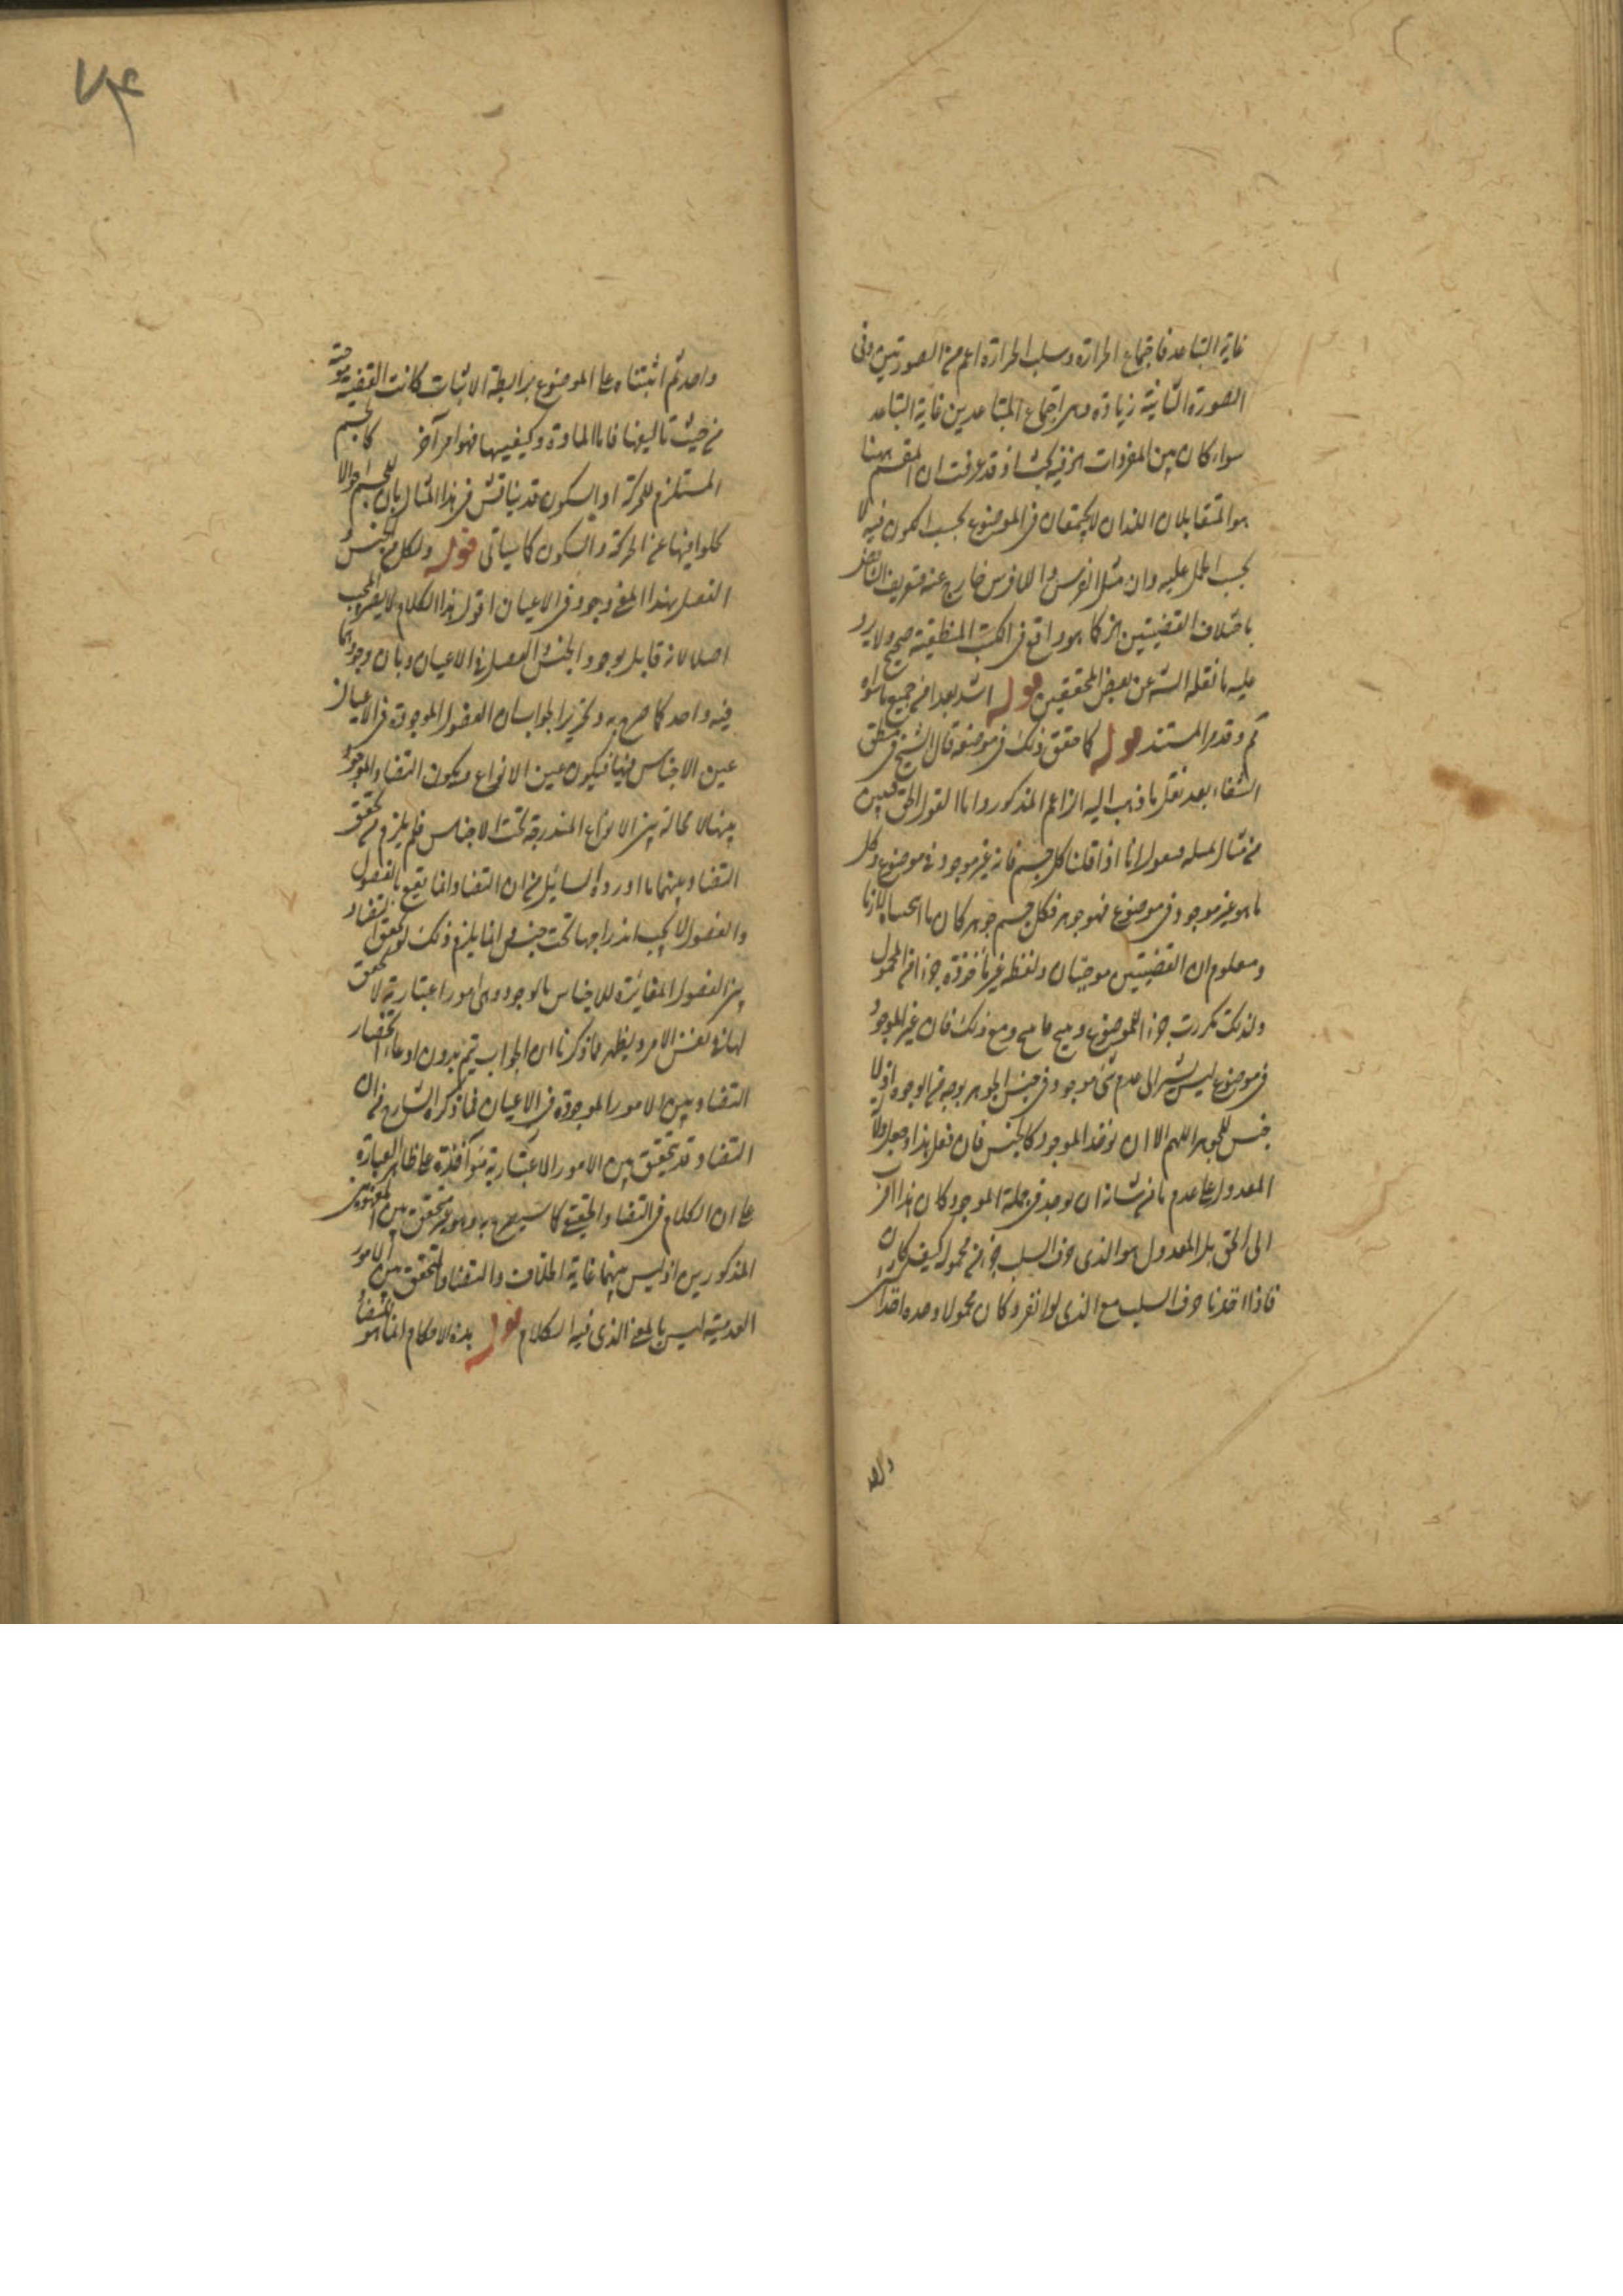 غاية التباعد فاجتماع الحرارة وسلب الحرارة اعم من الصورتين وفى
الصورة الثانية زيادة وهى اجتماع المتباعدين غاية التباعد
سواء كان بين المفردات او القضيه اذ قد عرفت ان المقسم ههنا
هو المتقابلان اللذان لا يجتمعان فى الموضوع بحسب الكون فيه لا
بحسب الحمل عليه وان مثل الفرس واللافرس خارج عنه فتعريف التناقض
باختلاف القضيتين كما هو واقع فى الكتب المنطقية صحيح ولا يرد
عليه ما نقله الشه عن بعض المحققين قوله اشد بعدا من جميع ما سواه
ثم وقد مر المستند قوله كما حقق ذلك فى موضعه قال الشيخ فى منطق
الشفاء بعد نقل ما ذهب اليه الزاعم المذكور واما القول الحق فيبين
من مثال نمثله فنقول انا اذا قلنا كل جسم فانه غير موجود فى موضوع وكل
ما هو غير موجود فى موضوع فهو جوهر فكل جسم جوهر كان ما انتجناه لازما
ومعلوم ان القضيتين موجبتان ولفظه غير مأخوذة جزء من المحمول
ولذلك تكررت جزء الموضوع ومع ذلك فان غير الموجود
فى موضوع ليس يشير الى عدم شئ موجود فى جنس الجوهر بوجه من الوجوه اذ لا
جنس للجوهر اللهم الا ان يؤخذ الموجود كالجنس فان فعل هذا وجعل دلالة
المعدول على عدم ما من شانه ان يوجد فى جملة الموجود كان هذا اقرب
الى الحق بل المعدول هو الذى حرف السلب جزء من محموله كيف كان
فاذا اخذنا حرف السلب مع الذى لو انفرد كان محمولا وحده اخذ شئ
واحد
واحد ثم اثبتناه على الموضوع برابطة الاثبات كانت القضية موجبة
من حيث تاليفها فاما المادة وكيفيتها فهو امر آخر كالجسم
المستلزم للحركة او السكون قد يناقش فى هذا المثال بان للجسم احوالا
يخلوا فيها عن الحركة والسكون كما سيأتى قوله ولكل من الجنس و
الفصل بهذا المعنى وجود فى الاعيان اقول هذا الكلام لا يضر المجيب
اصلا لانه قابل بوجود الجنس والفصل فى الاعيان وبان وجودهما
فيه واحد كما صرح به وتحرير الجواب ان الفصول الموجودة فى الاعيان
عين الاجناس فيها فيكون عين الانواع ويكون التضاد الموجود
بينها لا محالة بين الانواع المندرجة تحت الاجناس فلم يلزم من تحقق
التضاد بينهما ما اورده السائل من ان التضاد انما يقع بالفصول
والفصول لا يجب اندراجها تحت جنس انما يلزم ذلك لو تحقق التضاد
بين الفصول المغائرة للاجناس بالوجود وهى امور اعتبارية لا تحقق
لها فى نفس الامر ويظهر مما ذكرنا ان الجواب يتم بدون ادعاء انحصار
التضاد بين الامور الموجودة فى الاعيان فما ذكره الشارح من ان
التضاد قد يتحقق بين الامور الاعتبارية مؤاخذة على ظاهر العبارة
على ان الكلام فى التضاد الحقيقى كما سيصرح به وهو غير متحقق بين المفهومين
المذكورين اذ ليس بينهما غاية الخلاف والتضاد المتحقق بين الامور
العدمية ليس بالمعنى الذى فيه الكلام قوله هذه الاحكام انما هو للتضاد